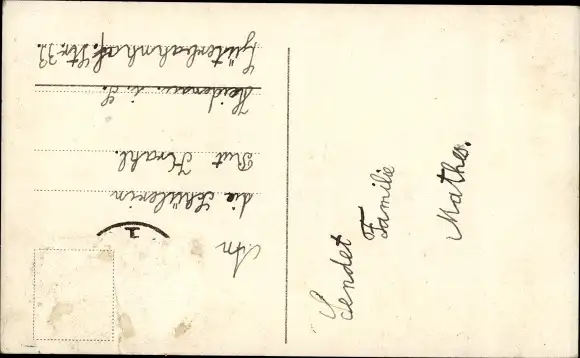 An
die Schülerin
Rut Krahl.
Heidenau i. S.
Güterbahnhof. Str. 33.
Sendet
Familie
Mathes.
1